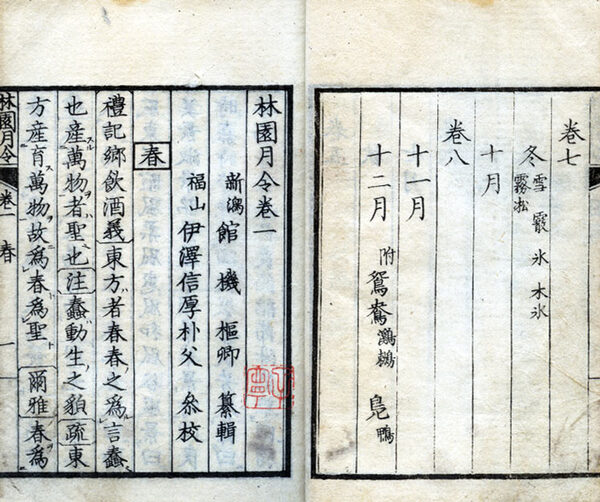 卷七
冬 雪 霰 氷 木氷
霧淞
十月
卷八
十一月
十二月 附 鴛鴦 鸂鶒 鳧 鴨
林園月令卷一
新潟 館 機 樞卿 纂輯
福山 伊澤信厚朴父 叅校
春
禮記鄉飲酒義東方者春春之爲言蠢
也産萬物者聖也注蠢動生之貌疏東
方産育萬物故爲春爲聖 爾雅春爲
林園月令 卷一 春 一